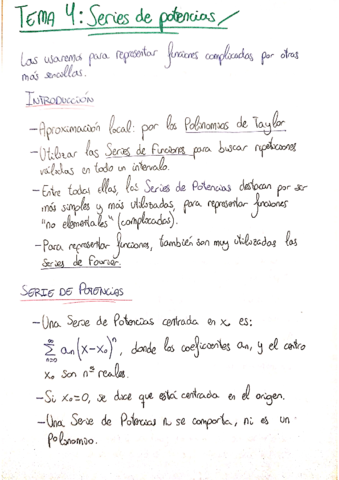 TEMA 4: Series de potencias
Las usaremos para representar funciones complicadas por otras
más sencillas.
INTRODUCCIÓN
-Aproximación local: por los Polinomios de Taylor
-Utilizar las Series de Funciones para buscar
válidas en todo un intervalo.
-Entre todas ellas, las Series de Potencias destacan por ser
más simples y más utilizadas, para representar funciones
"no elementales" (complicadas).
-Para representar funciones, también son muy utilizadas las
Series de Fourier.
SERIE DE POTENCIAS
-Una Serie de Potencias centrada en x₀ es:
∑ₙ₌₀^∞ aₙ(x-x₀)ⁿ, donde los coeficientes aₙ, y el centro
x₀ son nºs reales.
-Si x₀=0, se dice que está centrada en el origen.
-Una Serie de Potencias ni se comporta, ni es un
Polinomio.